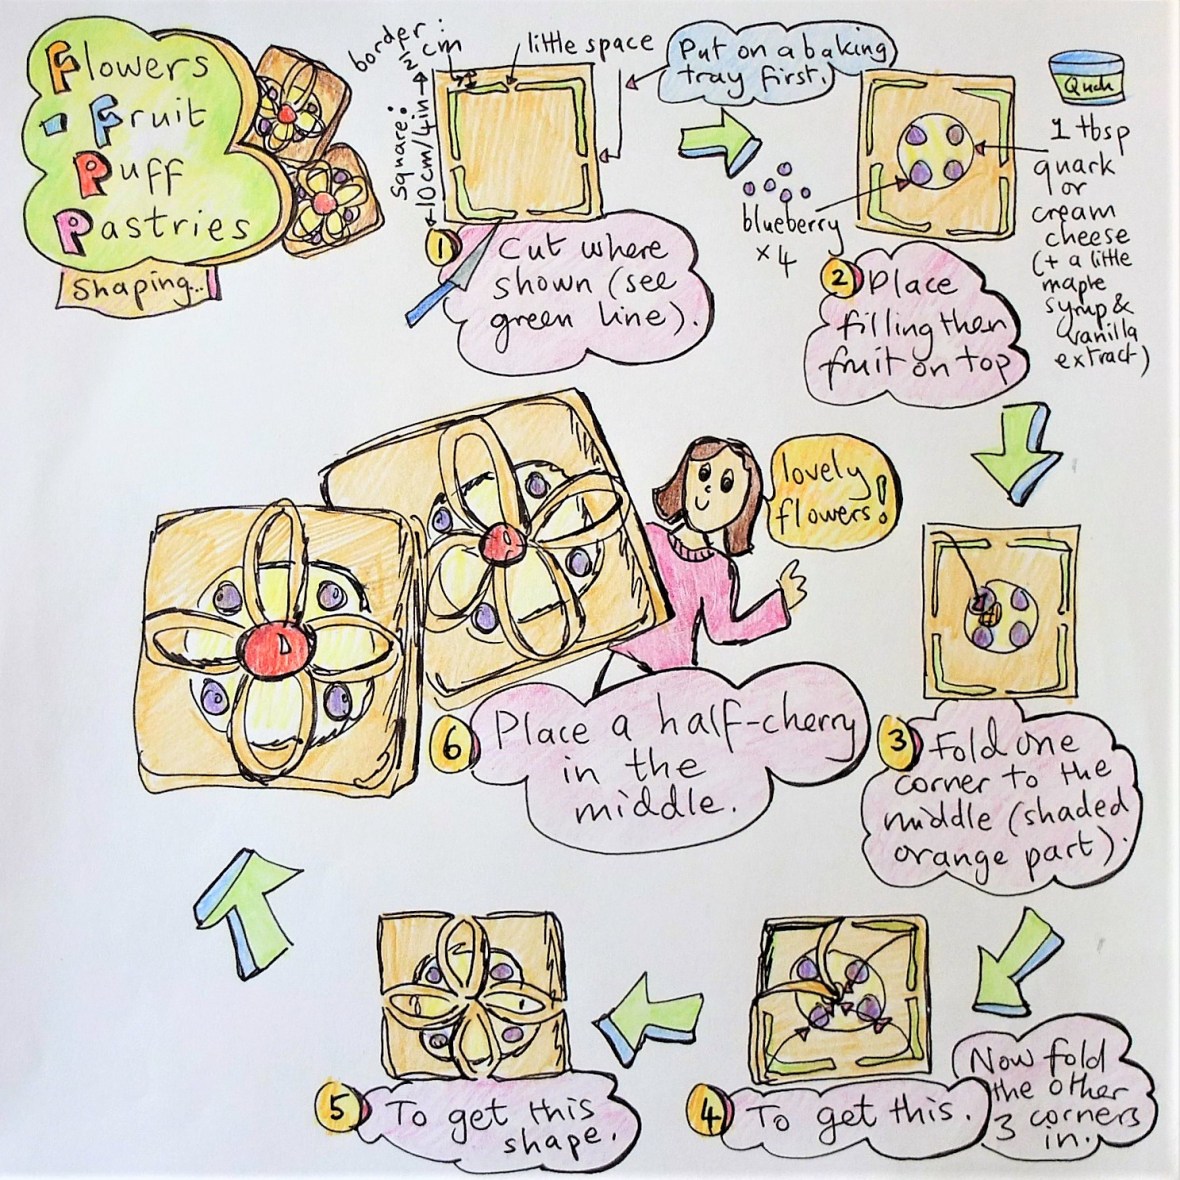 Flowers
- Fruit
Puff
Pastries
Shaping...
border
½ cm
little space
Square:
10cm/4in
Put on a baking
tray first.
1
Cut where
shown (see
green line).
blueberry
x 4
Quark
1 tbsp
quark
or
cream
cheese
(+ a little
maple
syrup &
vanilla
extract)
2 Place
filling then
fruit on top
3 Fold one
corner to the
middle (shaded
orange part).
Now fold
the other
3 corners
in.
4 To get this.
5 To get this
shape.
6 Place a half-cherry
in the
middle.
lovely
flowers!